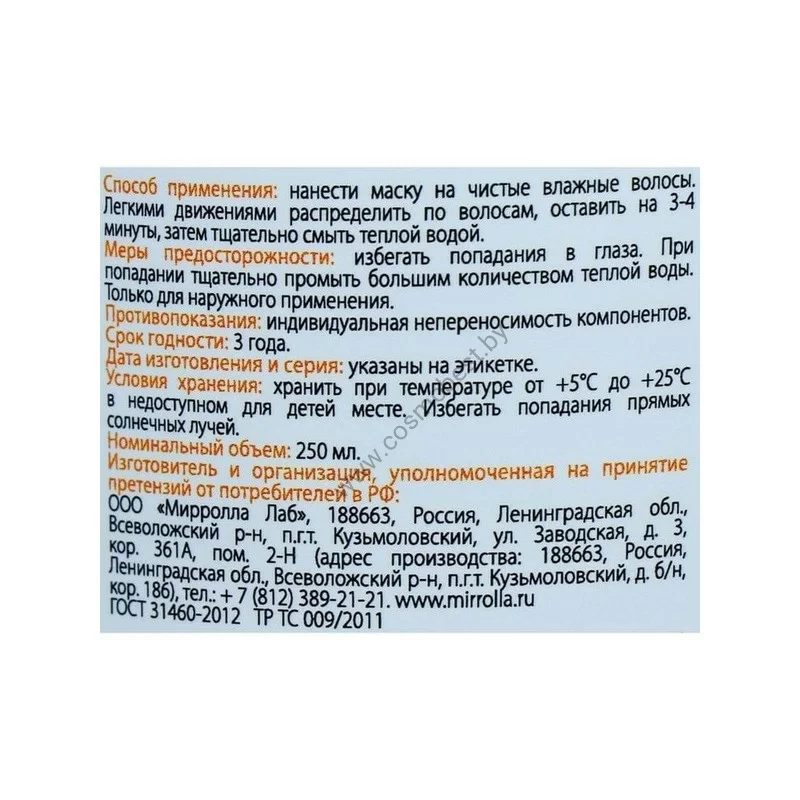 Способ применения: нанести маску на чистые влажные волосы.
Легкими движениями распределить по волосам, оставить на 3-4
минуты, затем тщательно смыть теплой водой.
Меры предосторожности: избегать попадания в глаза. При
попадании тщательно промыть большим количеством теплой воды.
Только для наружного применения.
Противопоказания: индивидуальная непереносимость компонентов.
Срок годности: 3 года.
Дата изготовления и серия: указаны на этикетке.
Условия хранения: хранить при температуре от +5°С до +25°С
в недоступном для детей месте. Избегать попадания прямых
солнечных лучей.
Номинальный объем: 250 мл.
Изготовитель и организация, уполномоченная на принятие
претензий от потребителей в РФ:
ООО «Мирролла Лаб», 188663, Россия, Ленинградская обл.,
Всеволожский р-н, п.г.т. Кузьмоловский, ул. Заводская, д. 3,
кор. 361А, пом. 2-Н (адрес производства: 188663, Россия,
Ленинградская обл., Всеволожский р-н, п.г.т. Кузьмоловский, д. б/н,
кор. 186), тел.: + 7 (812) 389-21-21. www.mirrolla.ru
ГОСТ 31460-2012 ТР ТС 009/2011
www.cosmobest.by